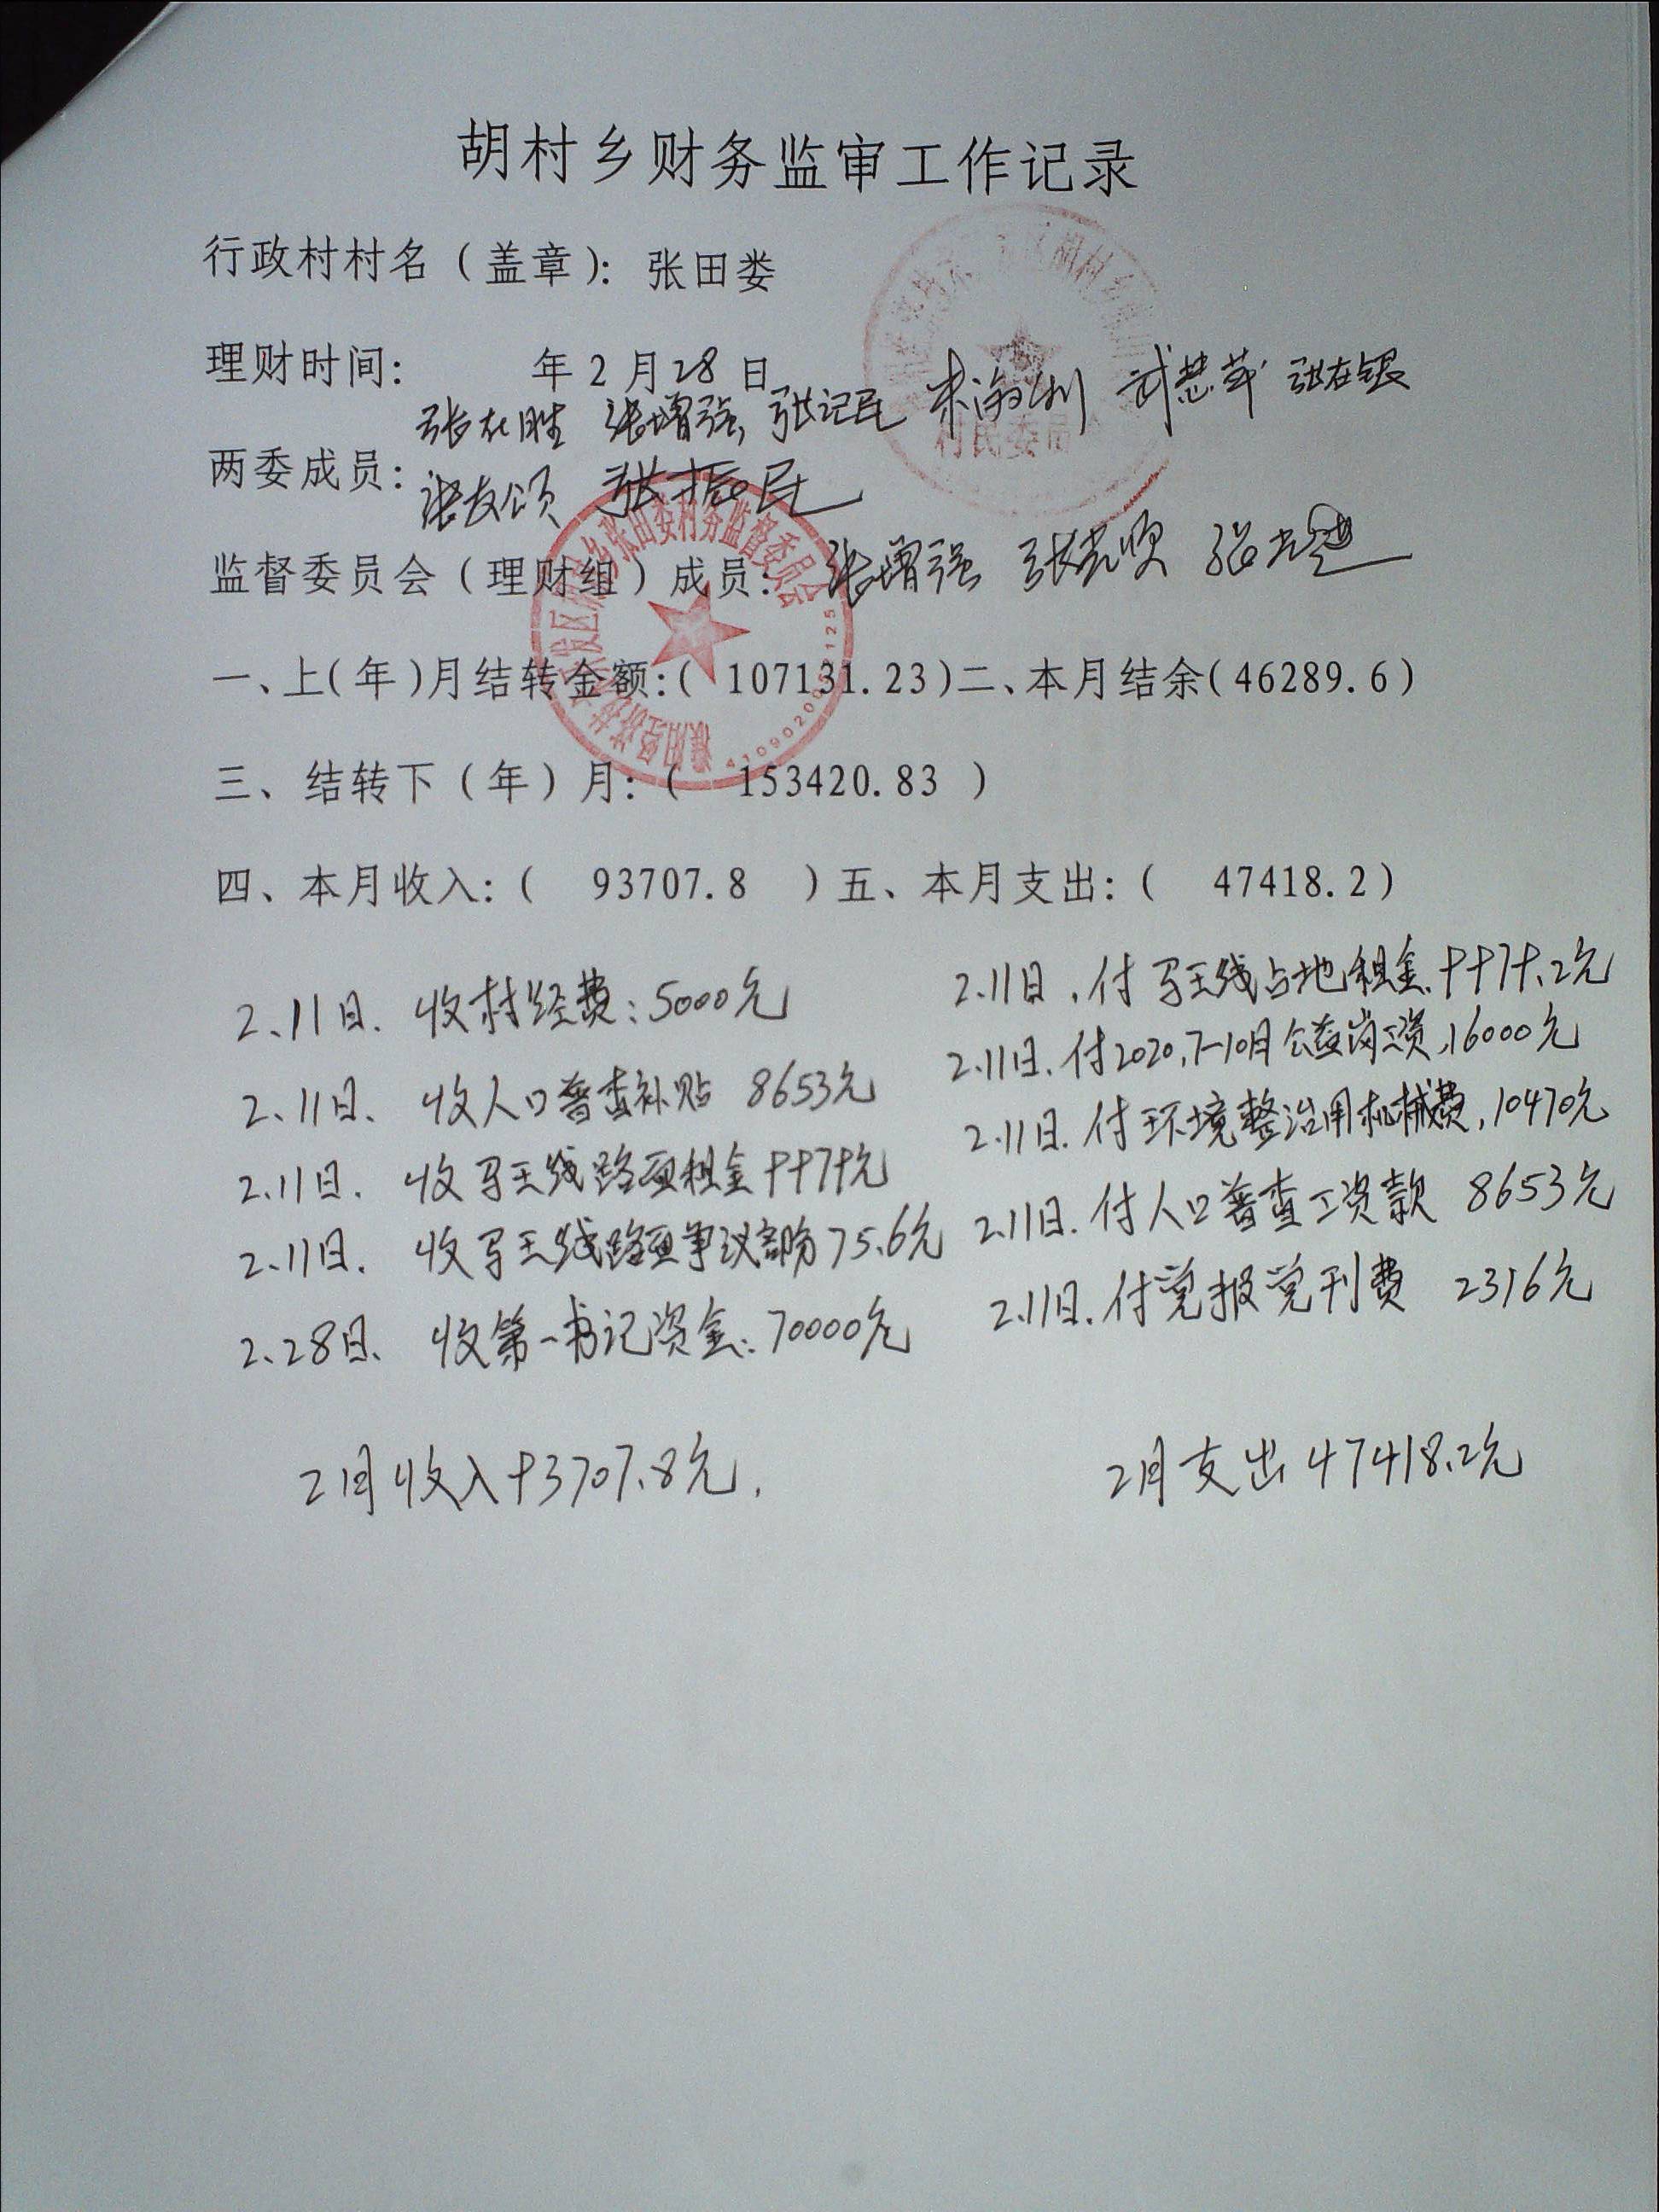 胡村乡财务监审工作记录
行政村村名（盖章）：张田娄
理财时间： 年2月28日
张在胜 张增强 张记民 武慧萍 张在银
两委成员：
张友领 张振民
监督委员会（理财组）成员：张增强 张克顺
张田娄村务监督委员会
村民委员
一、上(年)月结转金额:( 107131.23)二、本月结余(46289.6)
三、结转下（年）月:( 153420.83 )
四、本月收入:( 93707.8 )五、本月支出:( 47418.2)
2.11日. 收村经费：5000元
2.11日. 付马王线占地租金.9979.2元
2.11日. 收人口普查补贴 8653元
2.11日. 付2020.7-10月公益岗工资.16000元
2.11日. 收马王线路面租金9979元
2.11日. 付环境整治用机械费,10470元
2.11日. 收马王线路面争议部份75.6元
2.11日. 付人口普查工资款 8653元
2.28日. 收第一书记资金:70000元
2.11日. 付党报党刊费 2316元
2月收入93707.8元.
2月支出47418.2元